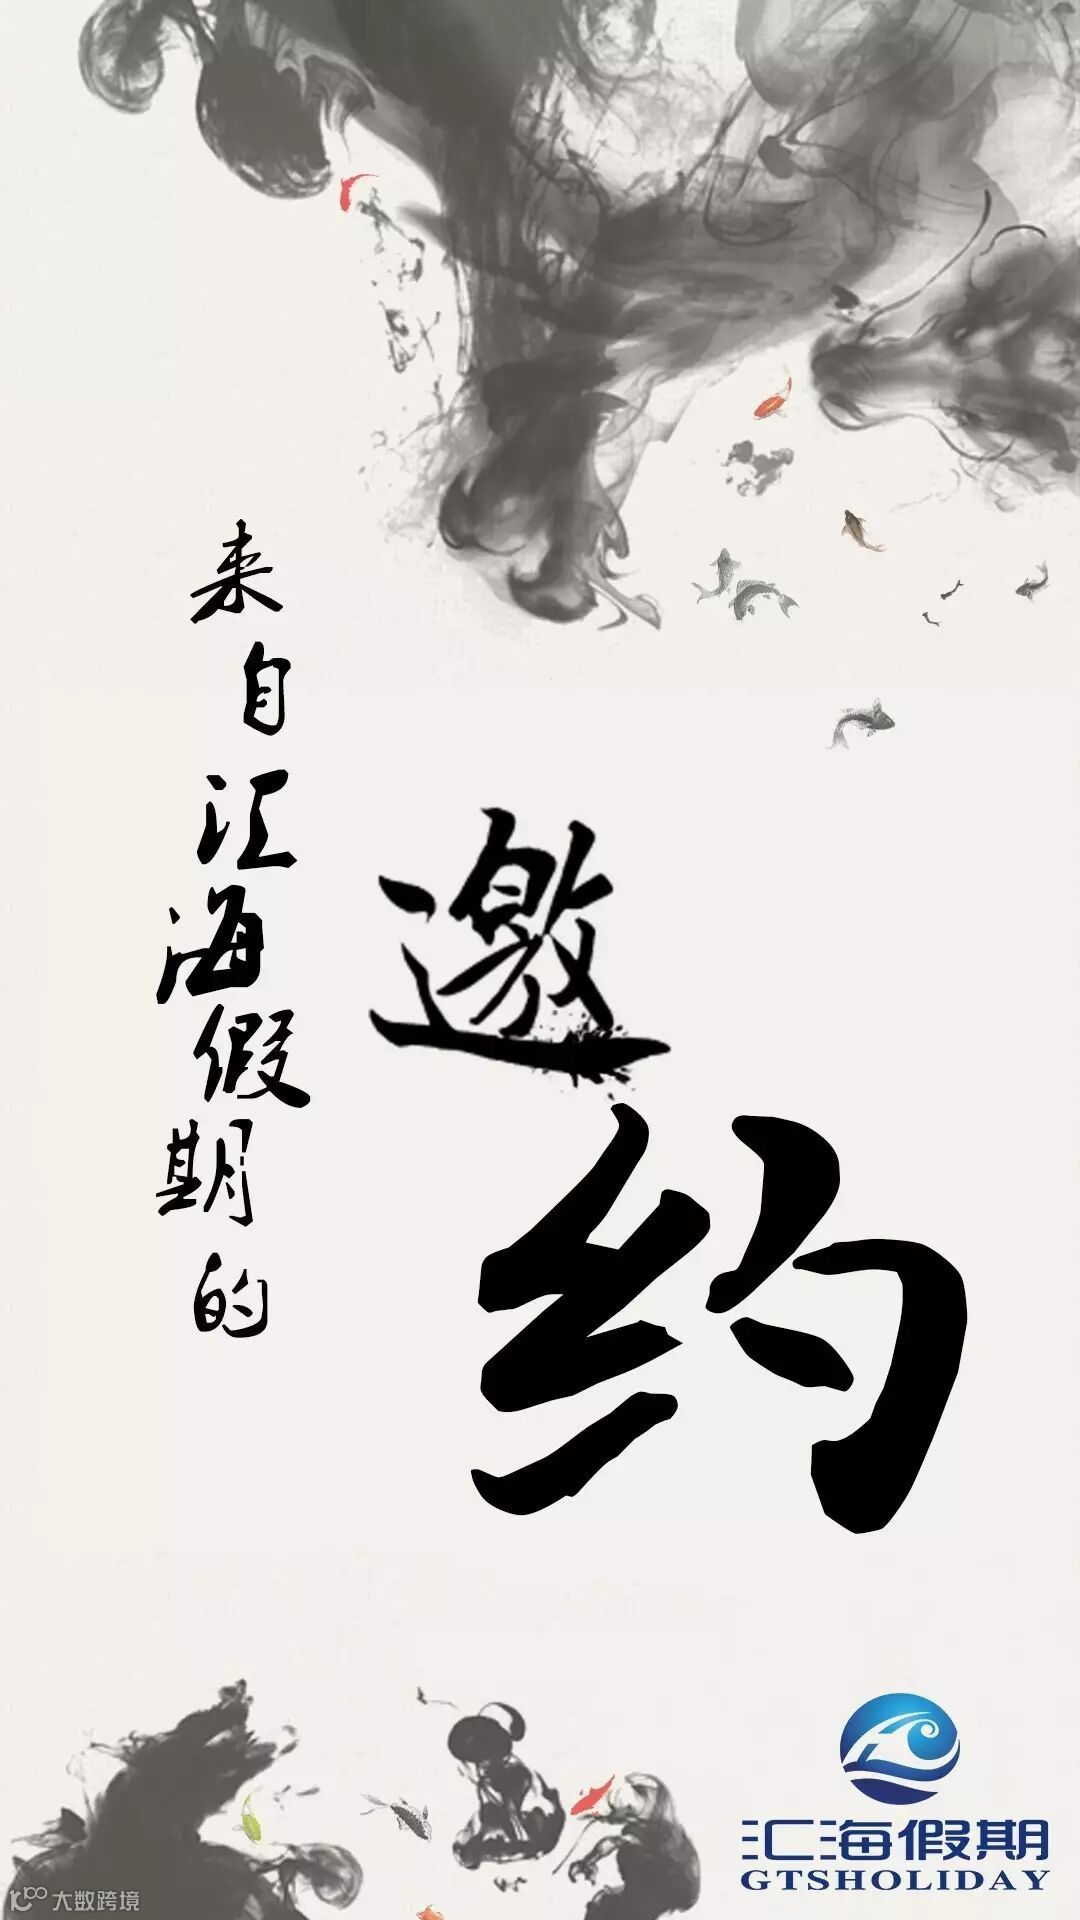 来自汇海假期的
邀约
汇海假期
GTSHOLIDAY
大数跨境